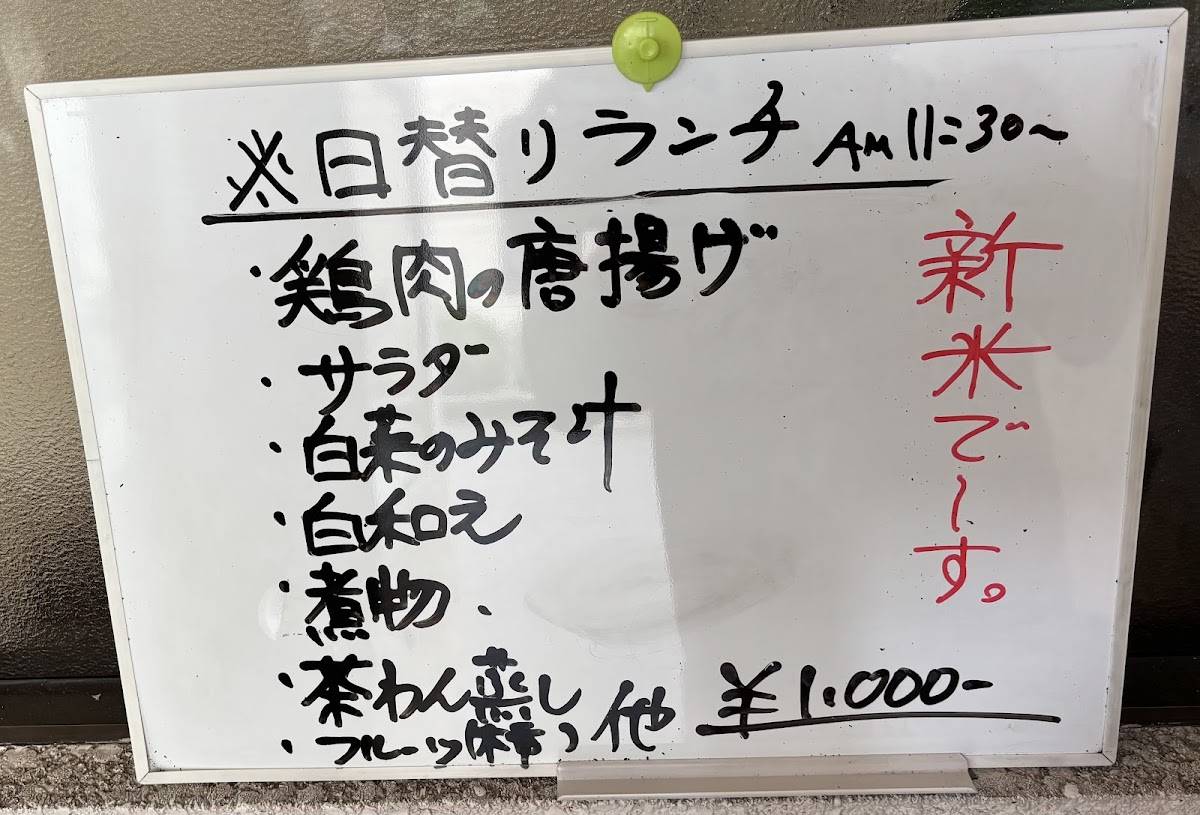 ※日替りランチ AM11:30〜
・鶏肉の唐揚げ
・サラダー
・白菜のみそ汁
・白和え
・煮物
・茶わん蒸し
・フルーツ(柿) 他
¥1.000-
新米で〜す。